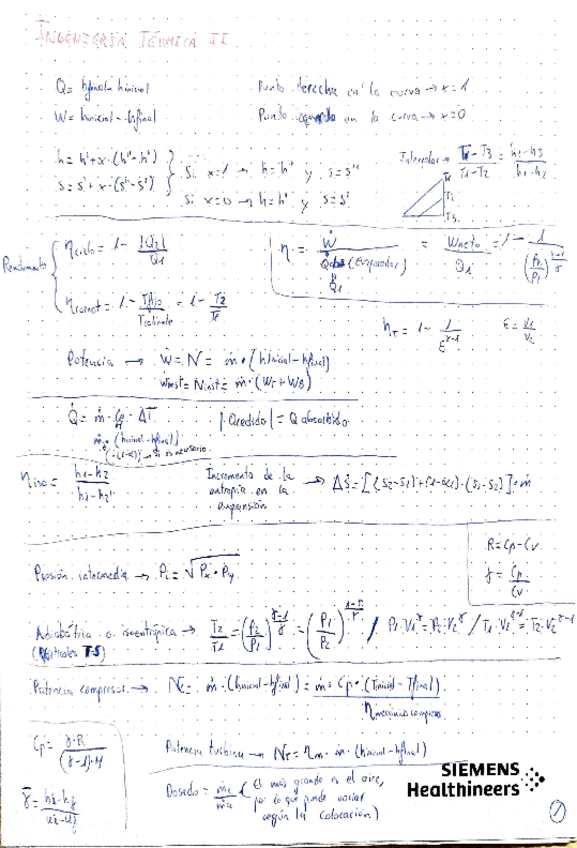 INGENIERÍA TÉRMICA II
Q = hfinal - hinicial
Punto derecha en la curva → x = 1
W = hinicial - hfinal
Punto izquierda en la curva → x = 0
h = h' + x · (h'' - h')
s = s' + x · (s'' - s')
Si x=1 → h = h'' y s = s''
si x=0 → h = h' y s = s'
Interpolar → (T1 - T3)/(T1 - T2) = (h1 - h3)/(h1 - h2)
T1
T2
T3
Rendimiento
ηciclo = 1 - |Q2|/Q1
ηcarnot = 1 - Tfrío/Tcaliente = 1 - T2/T1
η = Ẇ/Q̇abs (evaporador) = Wneto/Q1 = 1 - 1/(P2/P1)^((γ-1)/γ)
Q̇1
ηT = 1 - 1/ε^(γ-1)
ε = V1/V2
Potencia → Ẇ = N = ṁ · (hinicial - hfinal)
Ẇinst = Ninst = ṁ · (WT + WB)
Q̇ = ṁ · Cp · ΔT
|Qcedido| = Q absorbido
ṁ · (hinicial - hfinal)
si es necesario
ηiso = (h1 - h2)/(h1 - h2')
Incremento de la
entropía en la
expansión
→ ΔS = [(S2 - S1) + (1-α1) · (S3 - S2)] · ṁ
R = Cp - Cv
γ = Cp/Cv
Presión intermedia → Pi = √(Px · Py)
Adiabática o isentrópica → T2/T1 = (P2/P1)^((γ-1)/γ) = (P1/P2)^((1-γ)/γ) / P1 · V1^γ = P2 · V2^γ / T1 · V1^(γ-1) = T2 · V2^(γ-1)
(Verticales TS)
Potencia compresor → Nc = ṁ · (hinicial - hfinal) = ṁ · Cp · (Tinicial - Tfinal)
ηmecánico compresor
Cp = γ · R/((γ-1) · M)
Potencia turbina → NT = ηm · ṁ · (hinicial - hfinal)
Dosado = (El más grande es el aire,
por lo que puede variar
según la colocación)
SIEMENS
Healthineers
1